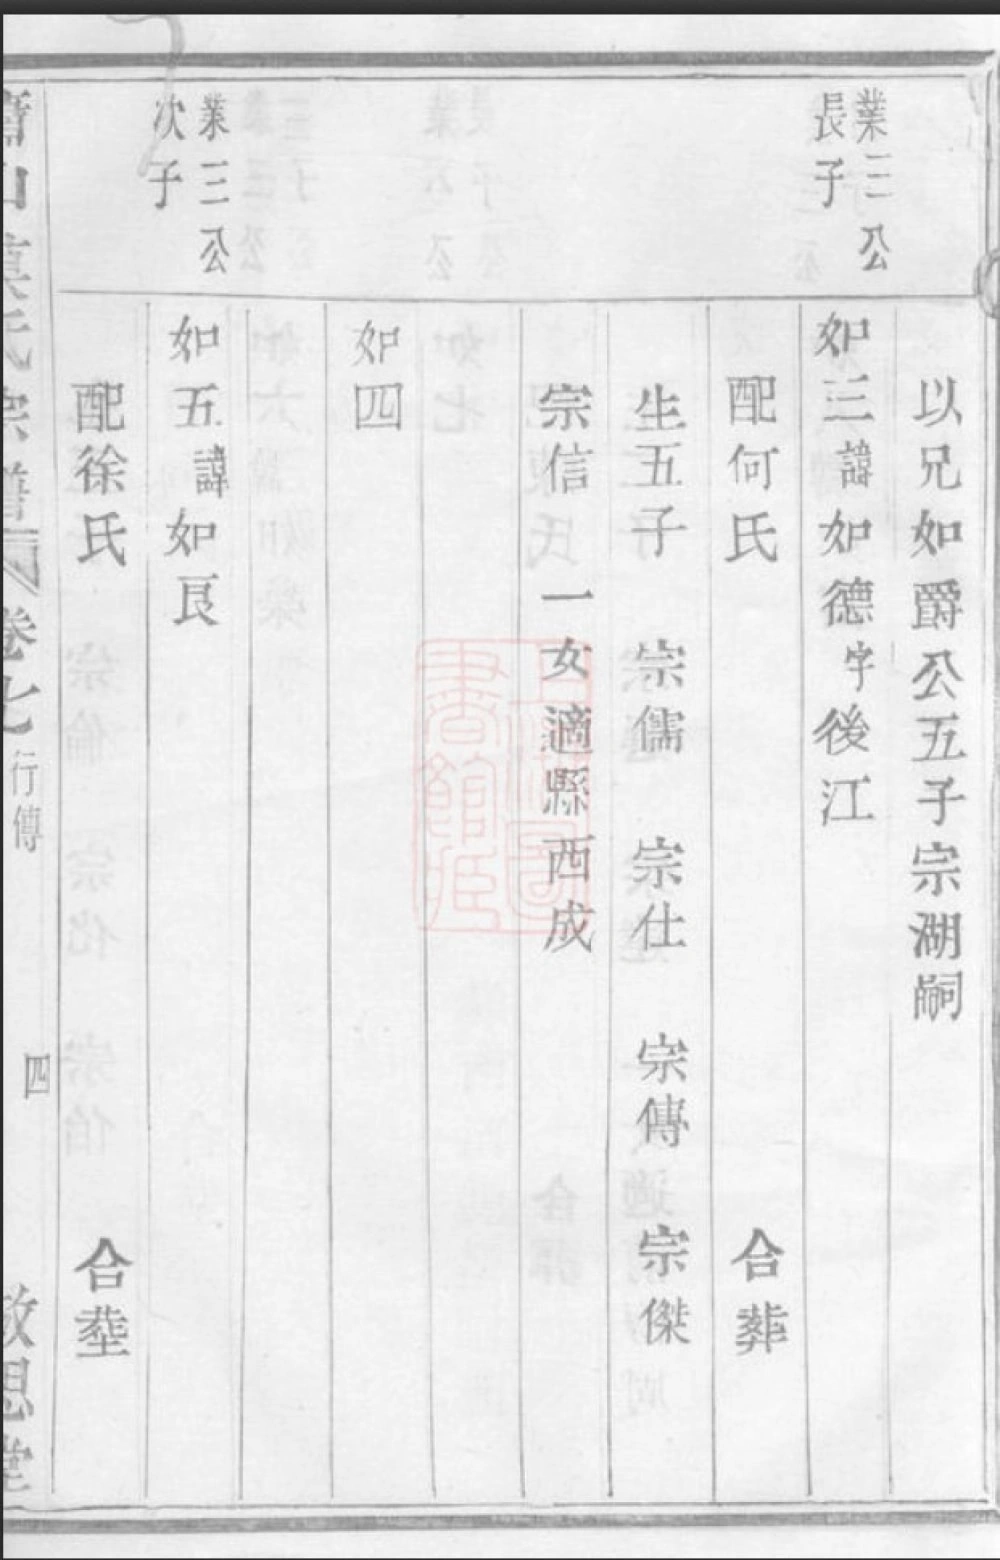 以兄如爵公五子宗湖嗣
業三公
長子
如三諱如德字後江
配何氏 合葬
生五子 宗儒 宗仕 宗傳 宗傑
宗信 一女適縣西成
如四
業三公
次子
如五諱如良
配徐氏 合塟
蕭山莫氏宗譜 卷七 行傳 四 敬思堂
上海圖書館藏